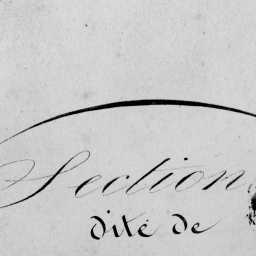 Section
dité de